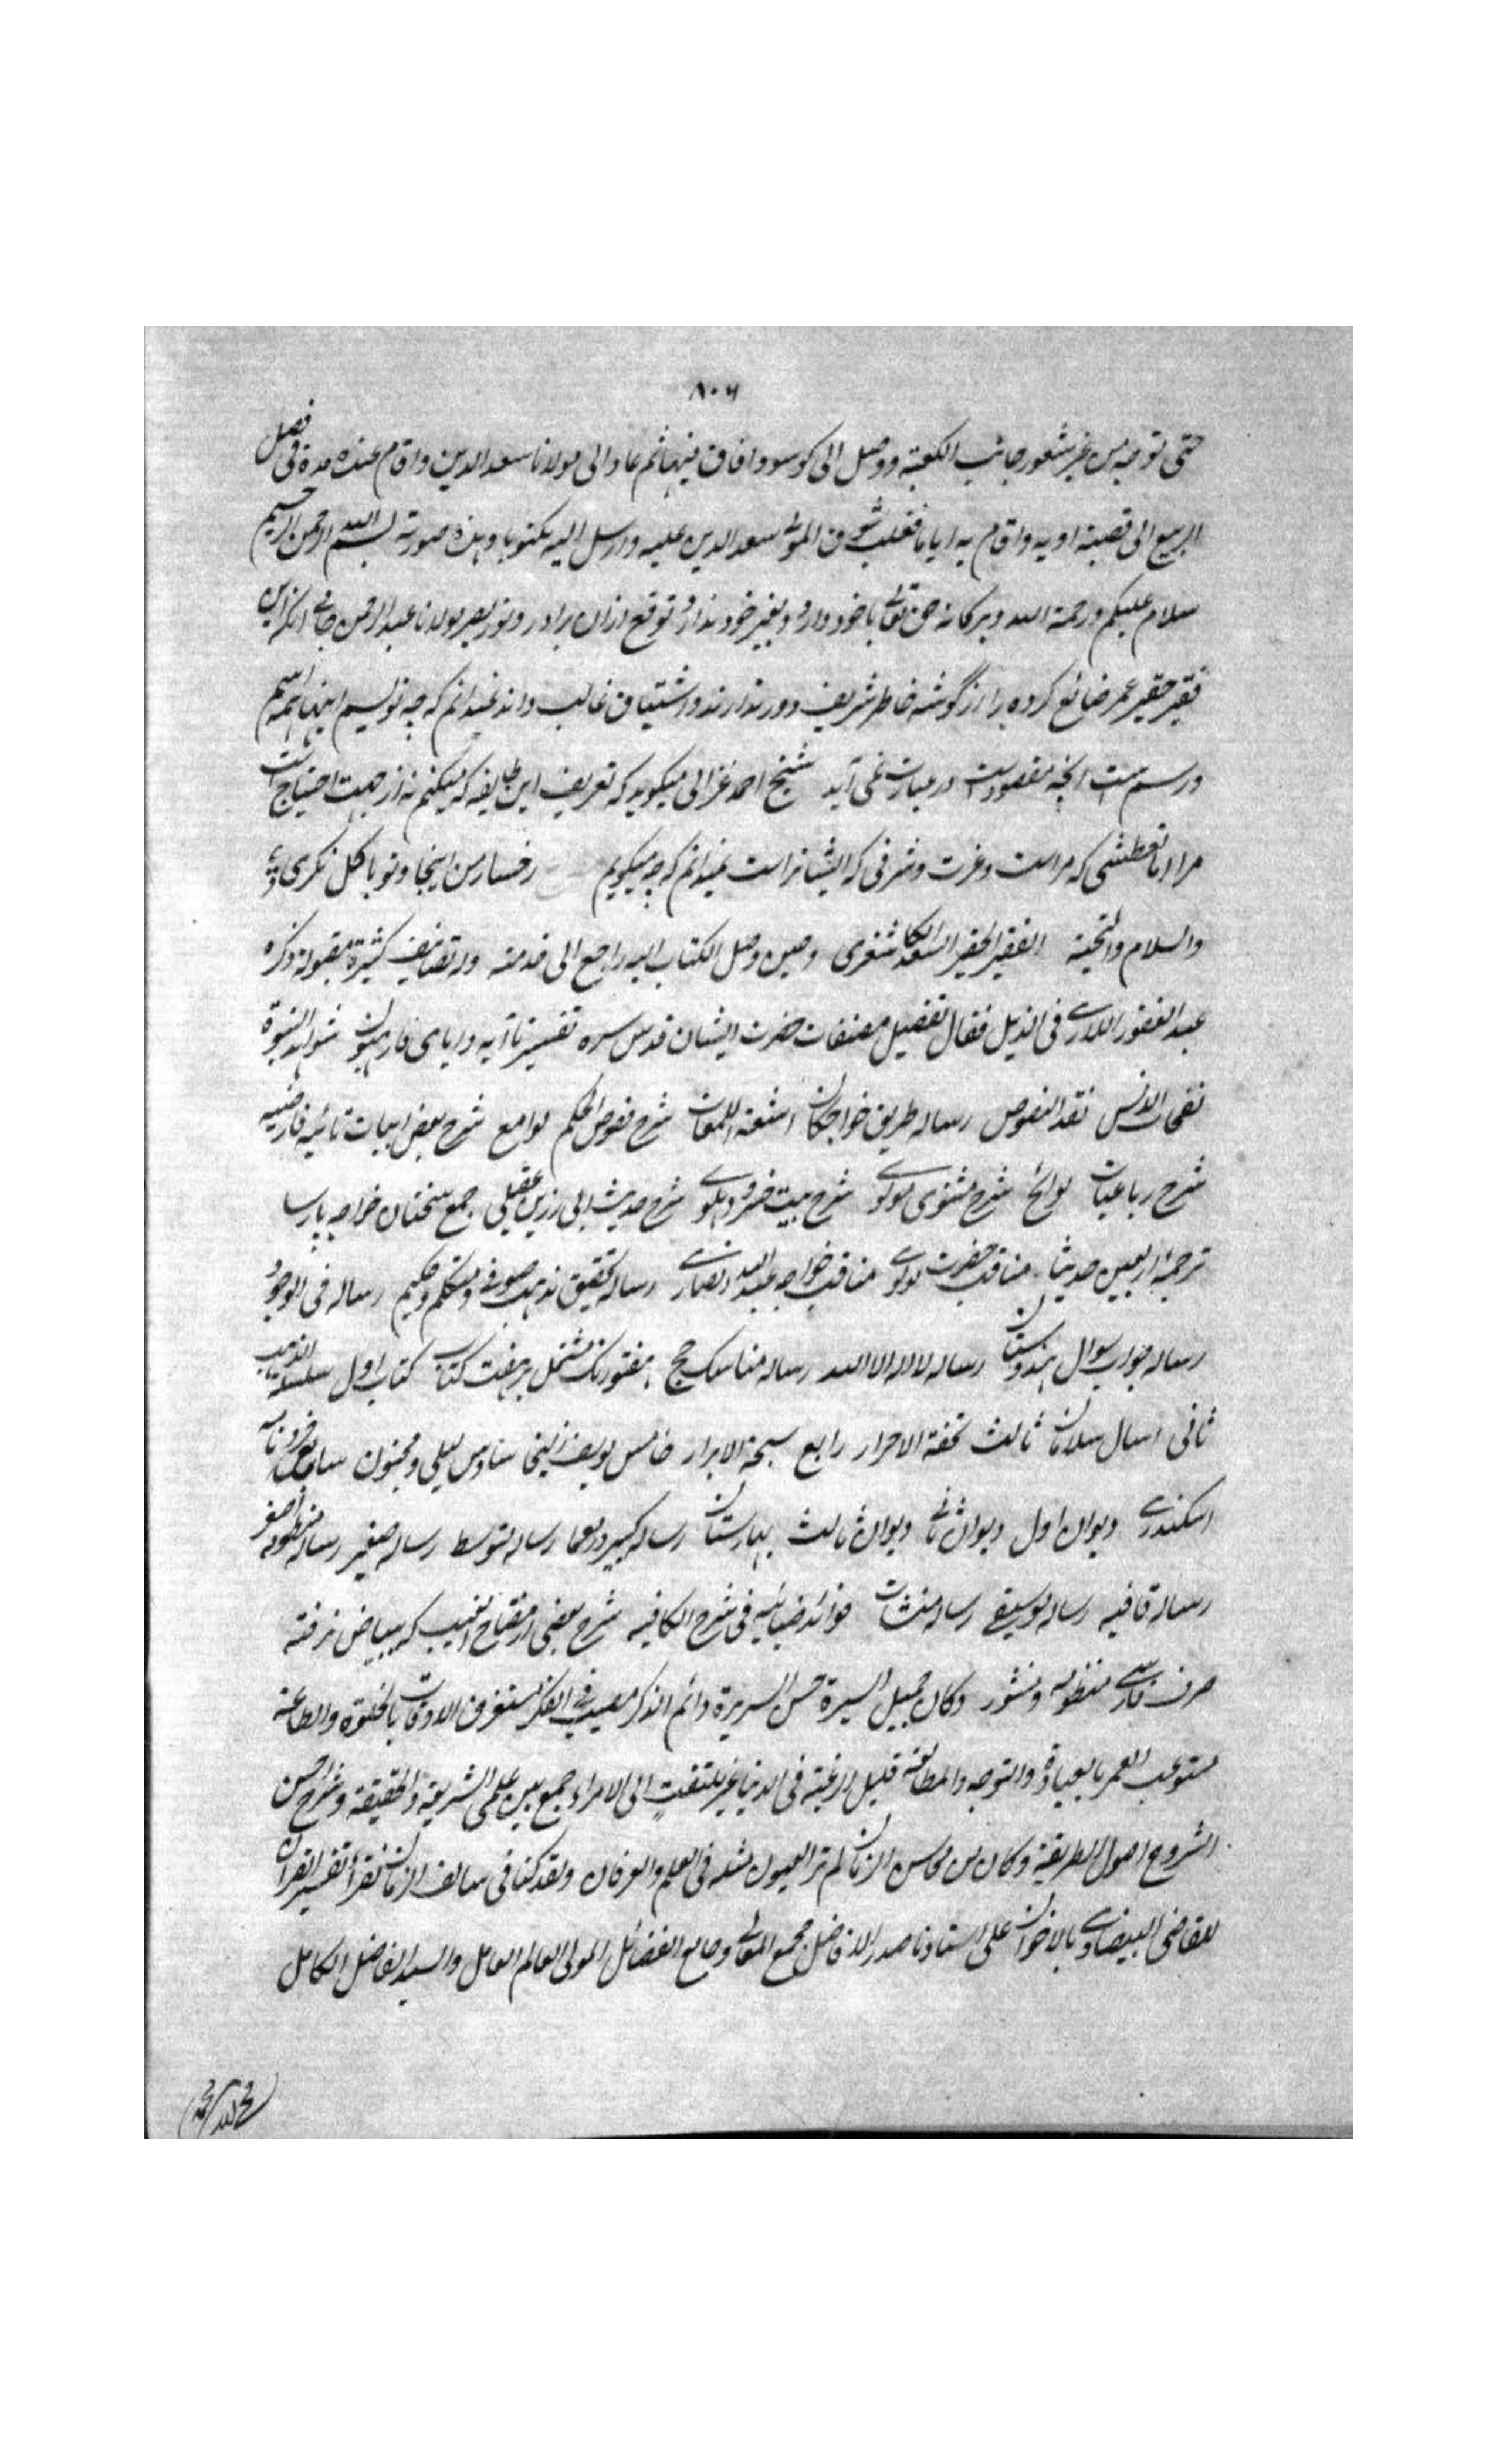 ٨٠٦
حتى توجه من غير شعور جانب الكعبة ووصل الى كوسو وافاق فيها ثم عاد الى مولانا سعد الدين واقام عنده مدة فى فصل
الربيع الى قصبة اوبه واقام به اياما فغلب شوق المولى سعد الدين عليه وارسل اليه مكتوبا وهذه صورته بسم الله الرحمن الرحيم
سلام عليكم ورحمة الله وبركاته حق تعالى با خود دارد وبغير خود نذارد توقع ازان برادر ونور بصر مولانا عبد الرحمن جامى انكه اين
فقير حقير عمر ضائع كرده را از گوشه خاطر شريف دور ندارند واشتياق غالب دانند نميدانم كه چه نويسم اينها همه اسم
ورسم ست انچه مقصودست در عبارت نمى آيد شيخ احمد غزالى ميگويد كه تعريف اين طايفه كه ميكنم نه از جهت احتياج است
مرا اما تعطشى كه مراست وعزت وشرفى كه ايشانراست نميدانم كه چه ميگويم رخسار من اينجا وتو با گل نگرى
والسلام والتحية الفقير الحقير السعد الكاشغرى وحين وصل الكتاب اليه راجع الى خدمته وله تصانيف كثيرة مقبولة ذكره
عبد الغفور اللارى فى الذيل فقال تفصيل مصنفات حضرت ايشان قدس سره تفسير تا آيه واياى فارهبون شواهد النبوة
نفحات الانس نقد النصوص رساله طريق خواجگان اشعة اللمعات شرح فصوص الحكم لوامع شرح بعض ابيات تائيه فارضيه
شرح رباعيات لوائح شرح مثنوى مولوى شرح بيت خسرو دهلوى شرح حديث ابى رزين عقيلى جمع سخنان خواجه پارسا
ترجمۀ اربعين حديثا مناقب حضرت مولوى مناقب خواجه عبد الله انصارى رساله تحقيق مذهب صوفى ومتكلم وحكيم رساله فى الوجود
رساله جواب سوال هندوستان رساله لا اله الا الله رساله مناسك حج هفتورنك مشتمل بر هفت كتاب كتاب اول سلسلة الذهب
ثانى اسال سلامان ثالث تحفة الاحرار رابع سبحة الابرار خامس يوسف زليخا سادس ليلى ومجنون سابع خرد نامه
اسكندرى ديوان اول ديوان ثانى ديوان ثالث بهارستان رساله كبير در معما رساله متوسط رساله صغير رساله منظومه اصغر
رساله قافيه رساله موسيقى رساله منشات فوائد ضيائيه فى شرح الكافيه شرح بعضى از مفتاح الغيب كه ببياض نرفته
صرف فارسى منظوم ومنثور وكان جميل السيرة حسن السريرة دائم الذكر مصيب فى الفكر مستغرق الاوقات بالخلوة والطاعة
مستوعب العمر بالعبادة والتوجه والمطالعة قليل الرغبة فى الدنيا غير ملتفت الى الامراء جمع بين علمى الشريعة والحقيقة وشرح احسن
الشروح اصول الطريقة وكان من محاسن الزمان لم تر العيون مثله فى العلم والعرفان ولقد كنا فى سالف الزمان نقرأ تفسير القرآن
للقاضى البيضاوى بالاخوان على استاذنا صدر الافاضل مجمع المعالى وجامع الفضائل المولى العالم العامل والسيد الفاضل الكامل